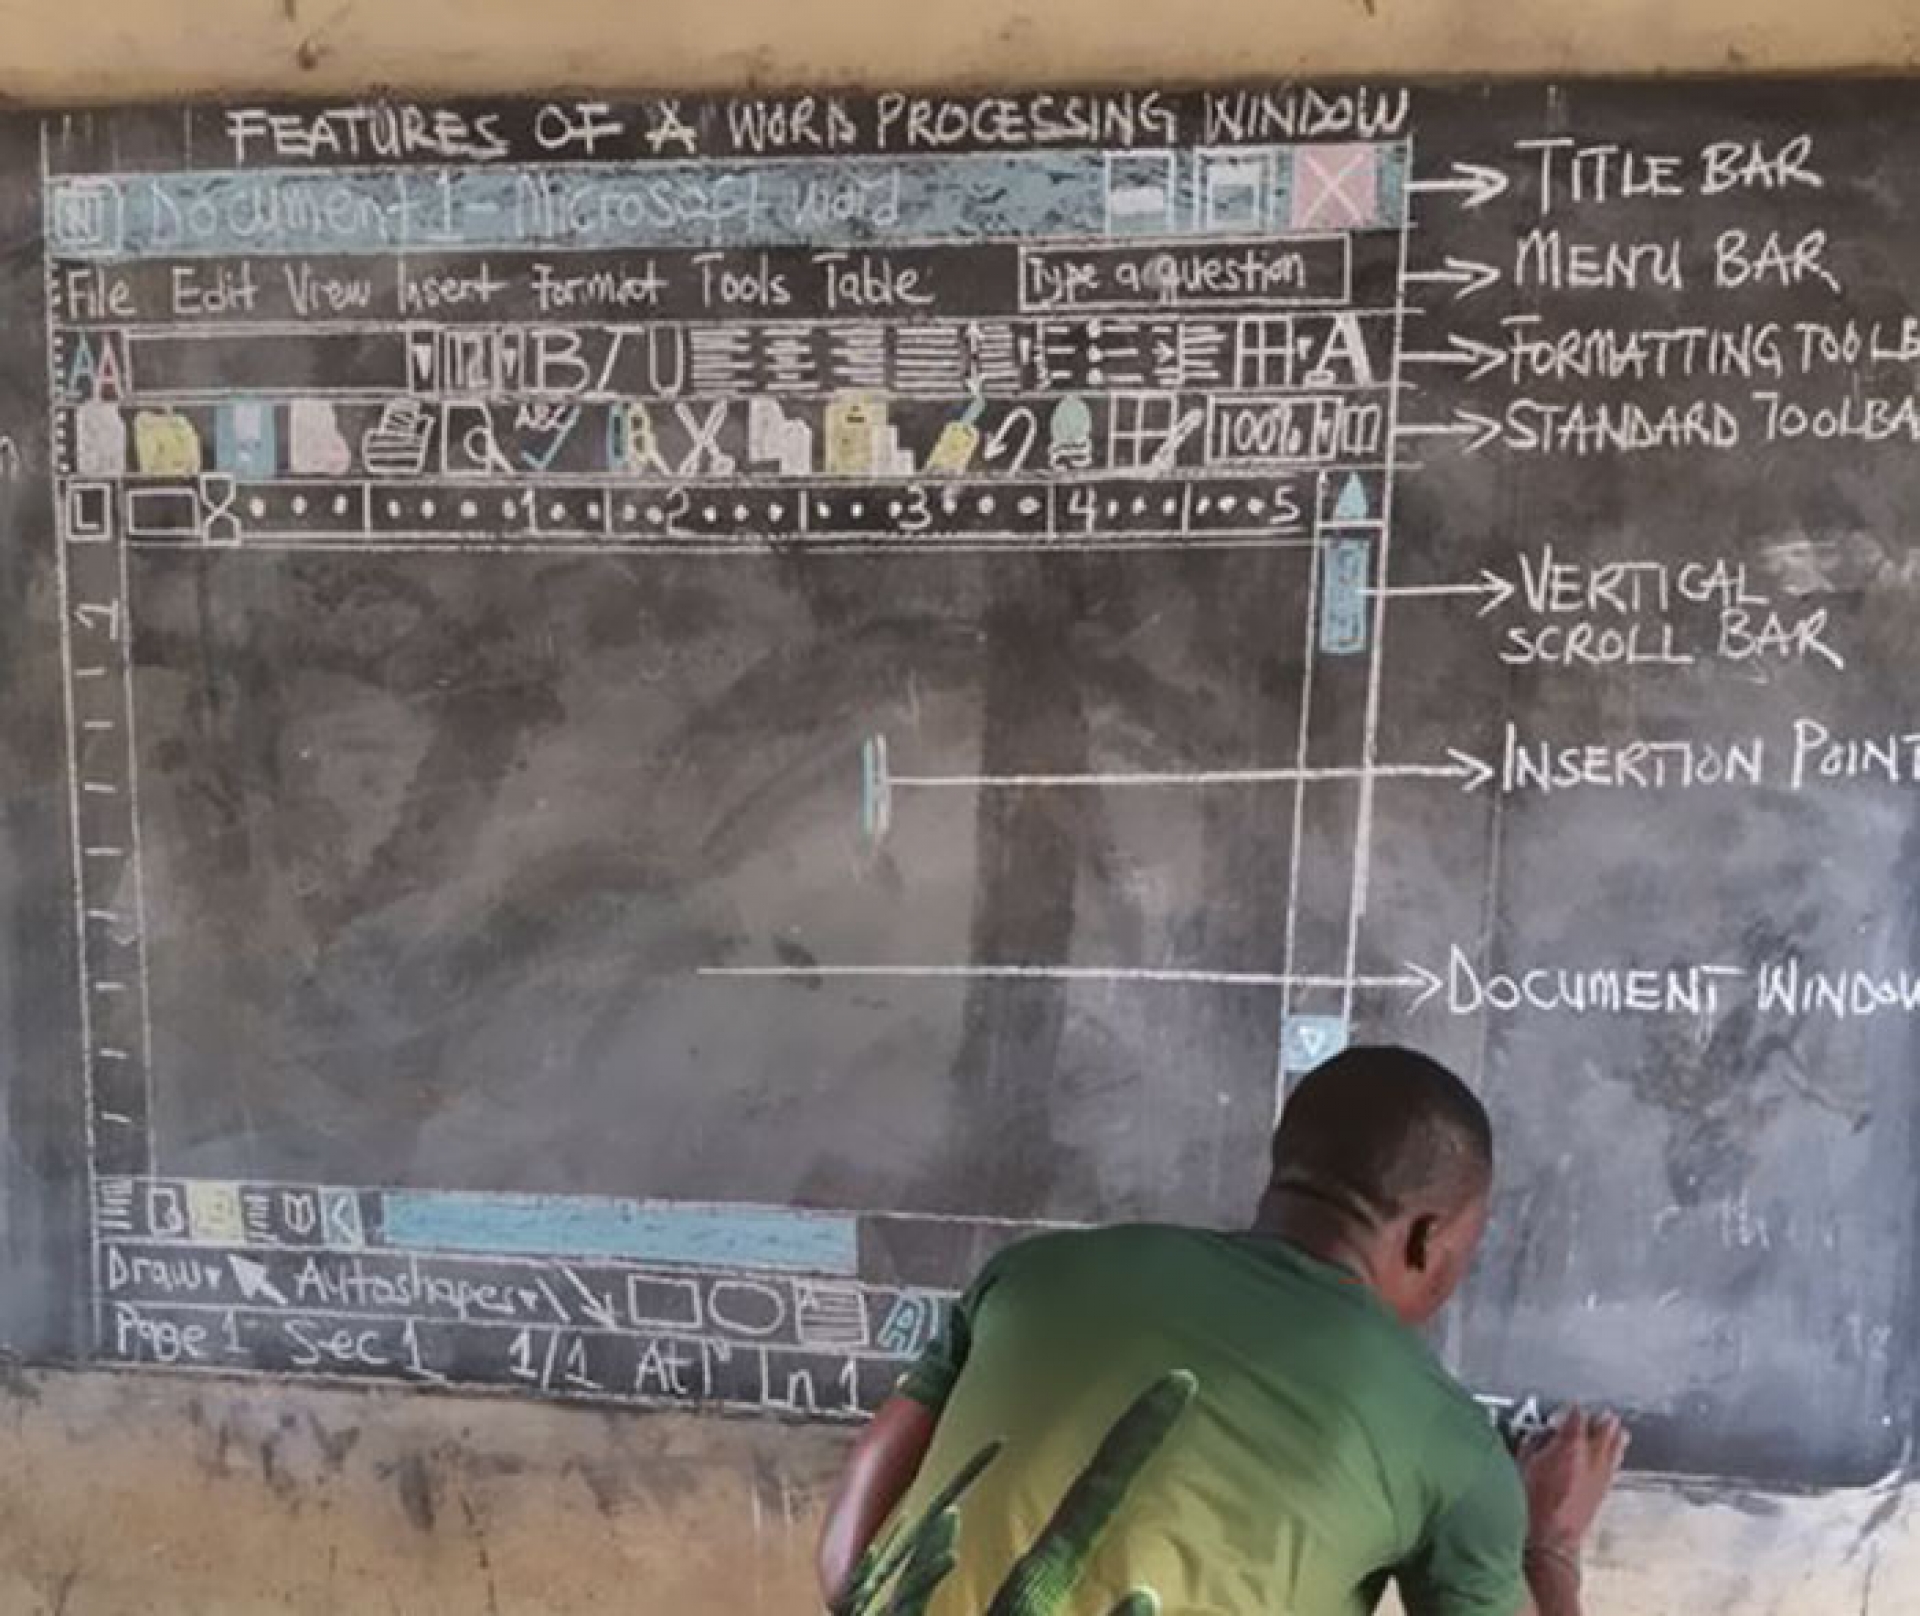 FEATURES OF A WORD PROCESSING WINDOW
Document 1 - Microsoft Word
TITLE BAR
File Edit View Insert Format Tools Table
Type a question
MENU BAR
AA
B I U
A
FORMATTING TOOLB
ABC
100%
STANDARD TOOLBA
L
1 2 3 4 5
1
VERTICAL
SCROLL BAR
INSERTION POINT
DOCUMENT WINDOW
Draw Autoshapes
A
Page 1 Sec 1 1/1 At 1" Ln 1
TA